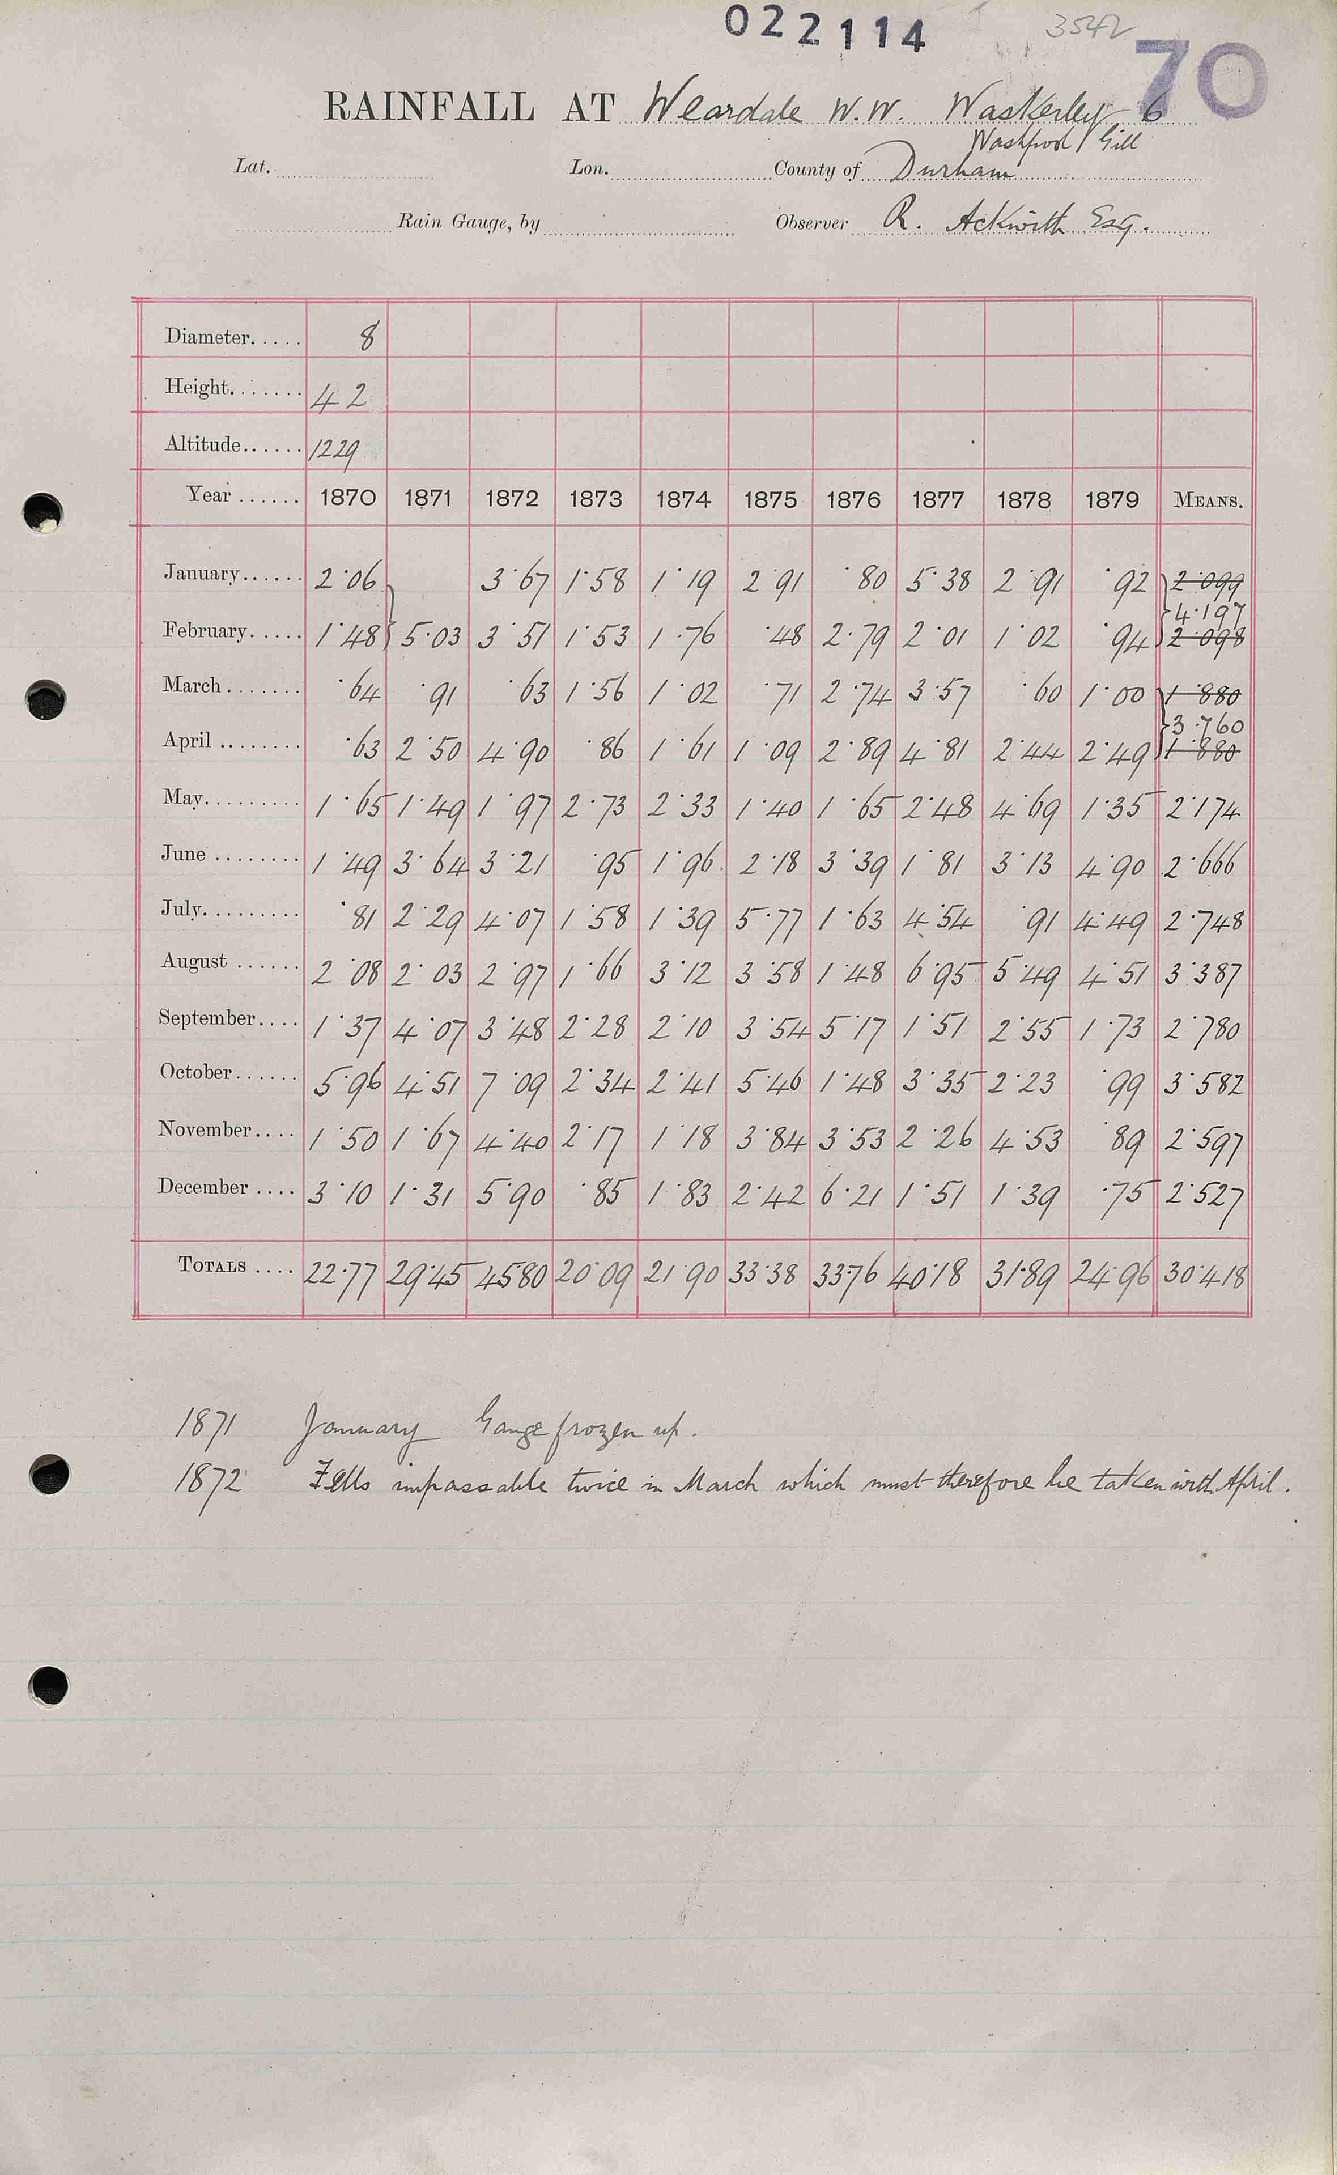 022114 3542
70
RAINFALL AT Weardale W.W. Waskerley 6
Washpool Gill
Lat. Lon. County of Durham
Rain Gauge, by Observer R. Ackwith Esq.
Diameter..... 8
Height....... 42
Altitude...... 1229
Year ...... 1870 1871 1872 1873 1874 1875 1876 1877 1878 1879 MEANS.
January...... 2·06 3·67 1·58 1·19 2·91 ·80 5·38 2·91 ·92 2·099
4·197
February..... 1·48 5·03 3·51 1·53 1·76 ·48 2·79 2·01 1·02 ·94 2·098
March....... ·64 ·91 ·63 1·56 1·02 ·71 2·74 3·57 ·60 1·00 1·880
3·760
April ........ ·63 2·50 4·90 ·86 1·61 1·09 2·89 4·81 2·44 2·49 1·880
May......... 1·65 1·49 1·97 2·73 2·33 1·40 1·65 2·48 4·69 1·35 2·174
June ........ 1·49 3·64 3·21 ·95 1·96 2·18 3·39 1·81 3·13 4·90 2·666
July......... ·81 2·29 4·07 1·58 1·39 5·77 1·63 4·54 ·91 4·49 2·748
August ...... 2·08 2·03 2·97 1·66 3·12 3·58 1·48 6·95 5·49 4·51 3·387
September.... 1·37 4·07 3·48 2·28 2·10 3·54 5·17 1·51 2·55 1·73 2·780
October...... 5·96 4·51 7·09 2·34 2·41 5·46 1·48 3·35 2·23 ·99 3·582
November.... 1·50 1·67 4·40 2·17 1·18 3·84 3·53 2·26 4·53 ·89 2·597
December .... 3·10 1·31 5·90 ·85 1·83 2·42 6·21 1·51 1·39 ·75 2·527
TOTALS .... 22·77 29·45 45·80 20·09 21·90 33·38 33·76 40·18 31·89 24·96 30·418
1871 January Gauge frozen up.
1872 Fells impassable twice in March which must therefore be taken with April.